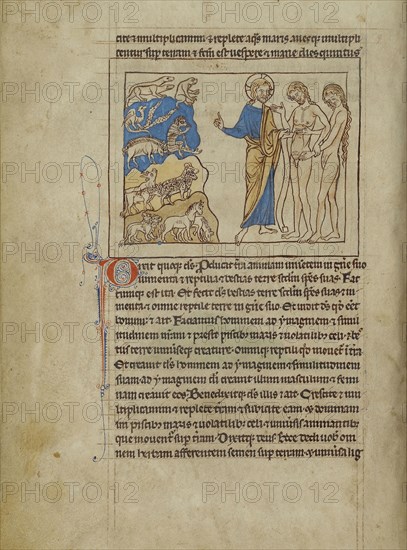 cite & multiplicamini & replete aqs maris auesqz multipli
centur sup terram & fcm est uespe & mane dies quintus
Dixit quoqz ds Producat tra animam uiuentem in gne suo
iumenta & reptilia & bestias terre scdm spes suas Fac
tumqz est ita Et fecit ds bestias terre scdm spes suas & iu
menta & omne reptile terre in gne suo Et uidit ds qd eet
bonum & ait Faciamus hominem ad ymaginem & simili
tudinem nram & presit piscibz maris & uolatilibz celi & bes
tiis terre uniuseqz creature omniqz reptili qd mouet in tra
Et creauit ds hominem ad ymaginem & similitudinem
suam ad ymaginem di creauit illum masculum & femi
nam creauit eos Benedixitqz ds illis & ait Crescite & mul
tiplicamini & replete tram & subicite eam & dominami
ni piscibz maris & uolatilibz celi & uniuersis animantibz
que mouent sup tram Dixitqz deus Ecce dedi uob om
nem herbam afferentem semen sup terram & uniuersa lig
PHOTO12